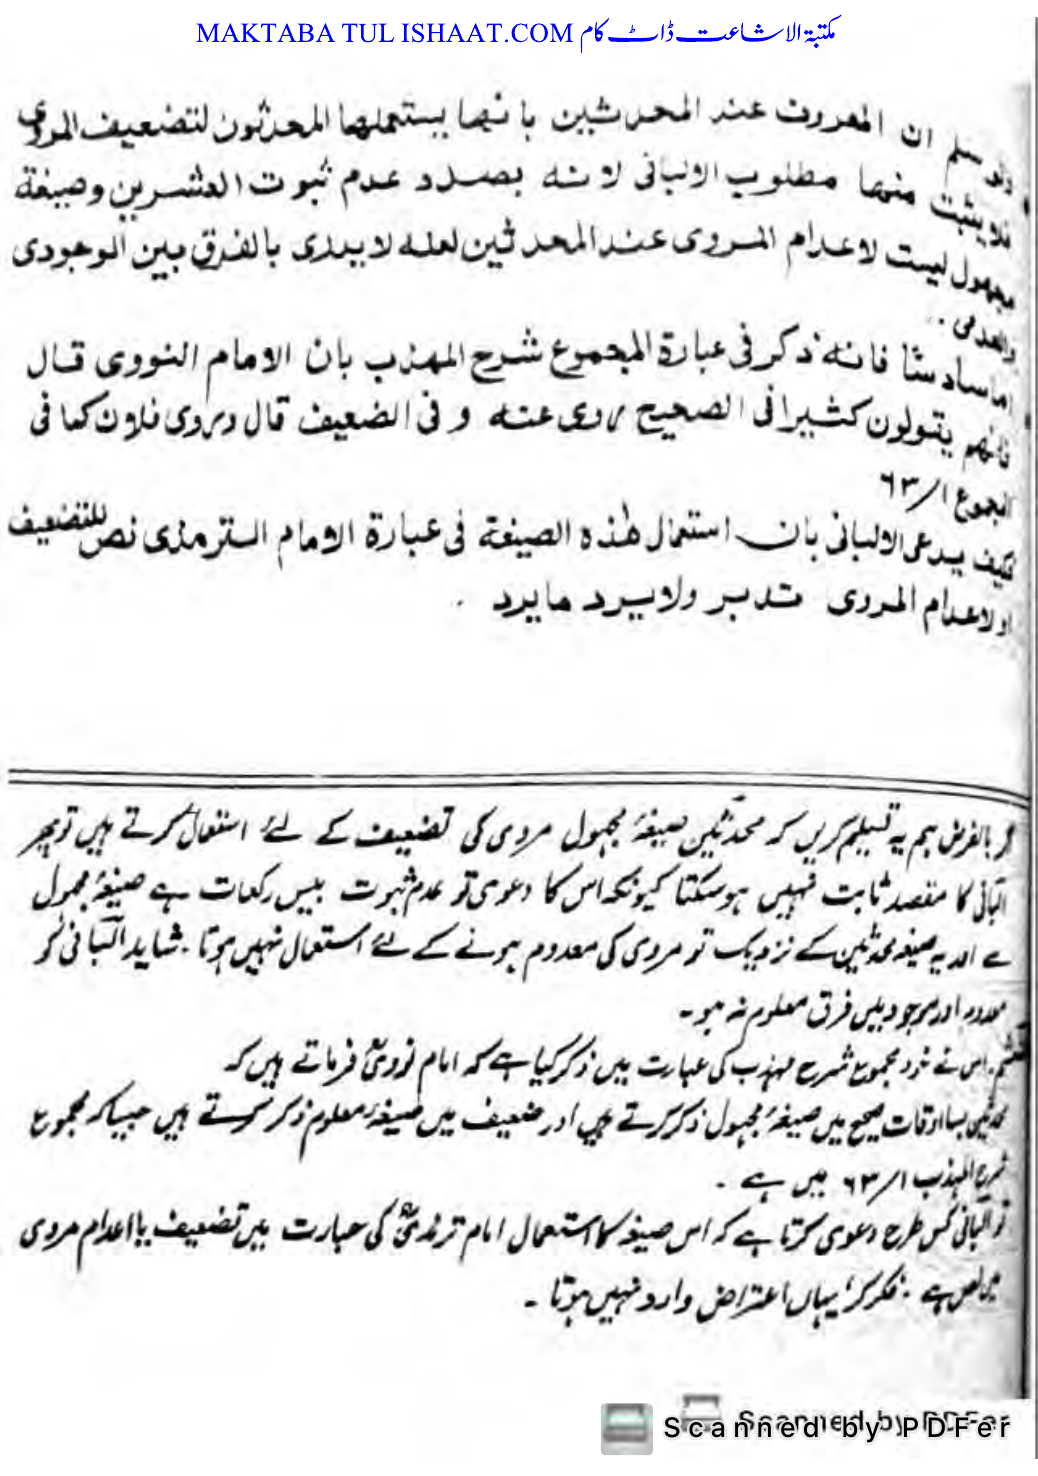 MAKTABA TUL ISHAAT.COM مکتبۃ الاشاعت ڈاٹ کام
ولو سلم ان المعروف عند المحدثين بانها يستعملها المحدثون لتضعيف المروى
فلا يثبت منها مطلوب الالبانى لانه بصدد عدم ثبوت العشرين وصيغة
مجهول ليست لاعدام المروى عند المحدثين لعله لا يدرى بالفرق بين الوجودى
والعدمى .
اما سادسًا فانه ذكر فى عبارة المجموع شرح المهذب بان الامام النووى قال
فانهم يقولون كثيرا فى الصحيح روى عنه و فى الضعيف قال وروى فلان كما فى
المجموع ١/٦٣
فكيف يدعى الالبانى بان استعمال هذه الصيغة فى عبارة الامام الترمذى نص للتضعيف
او لاعدام المروى تدبر ولا يرد ما يرد .
گر بالفرض ہم یہ تسلیم کریں کہ محدثین صیغۂ مجہول مروی کی تضعیف کے لئے استعمال کرتے ہیں تو پھر
البانی کا مقصد ثابت نہیں ہو سکتا کیونکہ اس کا دعوی تو عدم ثبوت بیس رکعات ہے صیغۂ مجہول
سے اور یہ صیغہ محدثین کے نزدیک تو مروی کی معدوم ہونے کے لئے استعمال نہیں ہوتا ۔ شاید البانی کو
معدوم اور موجود میں فرق معلوم نہ ہو ۔
ششم ۔ اس نے خود مجموع شرح مہذب کی عبارت میں ذکر کیا ہے کہ امام نوویؒ فرماتے ہیں کہ
محدثین بسا اوقات صحیح میں صیغۂ مجہول ذکر کرتے ہیں اور ضعیف میں صیغۂ معلوم ذکر کرتے ہیں جیسا کہ مجموع
شرح المہذب ۱/۶۳ میں ہے ۔
تو البانی کس طرح دعوی کرتا ہے کہ اس صیغہ کا استعمال امام ترمذیؒ کی عبارت میں تضعیف یا اعدام مروی
میں نص ہے ۔ فکر کر، یہاں اعتراض وارد نہیں ہوتا ۔
Scanned by PDFer